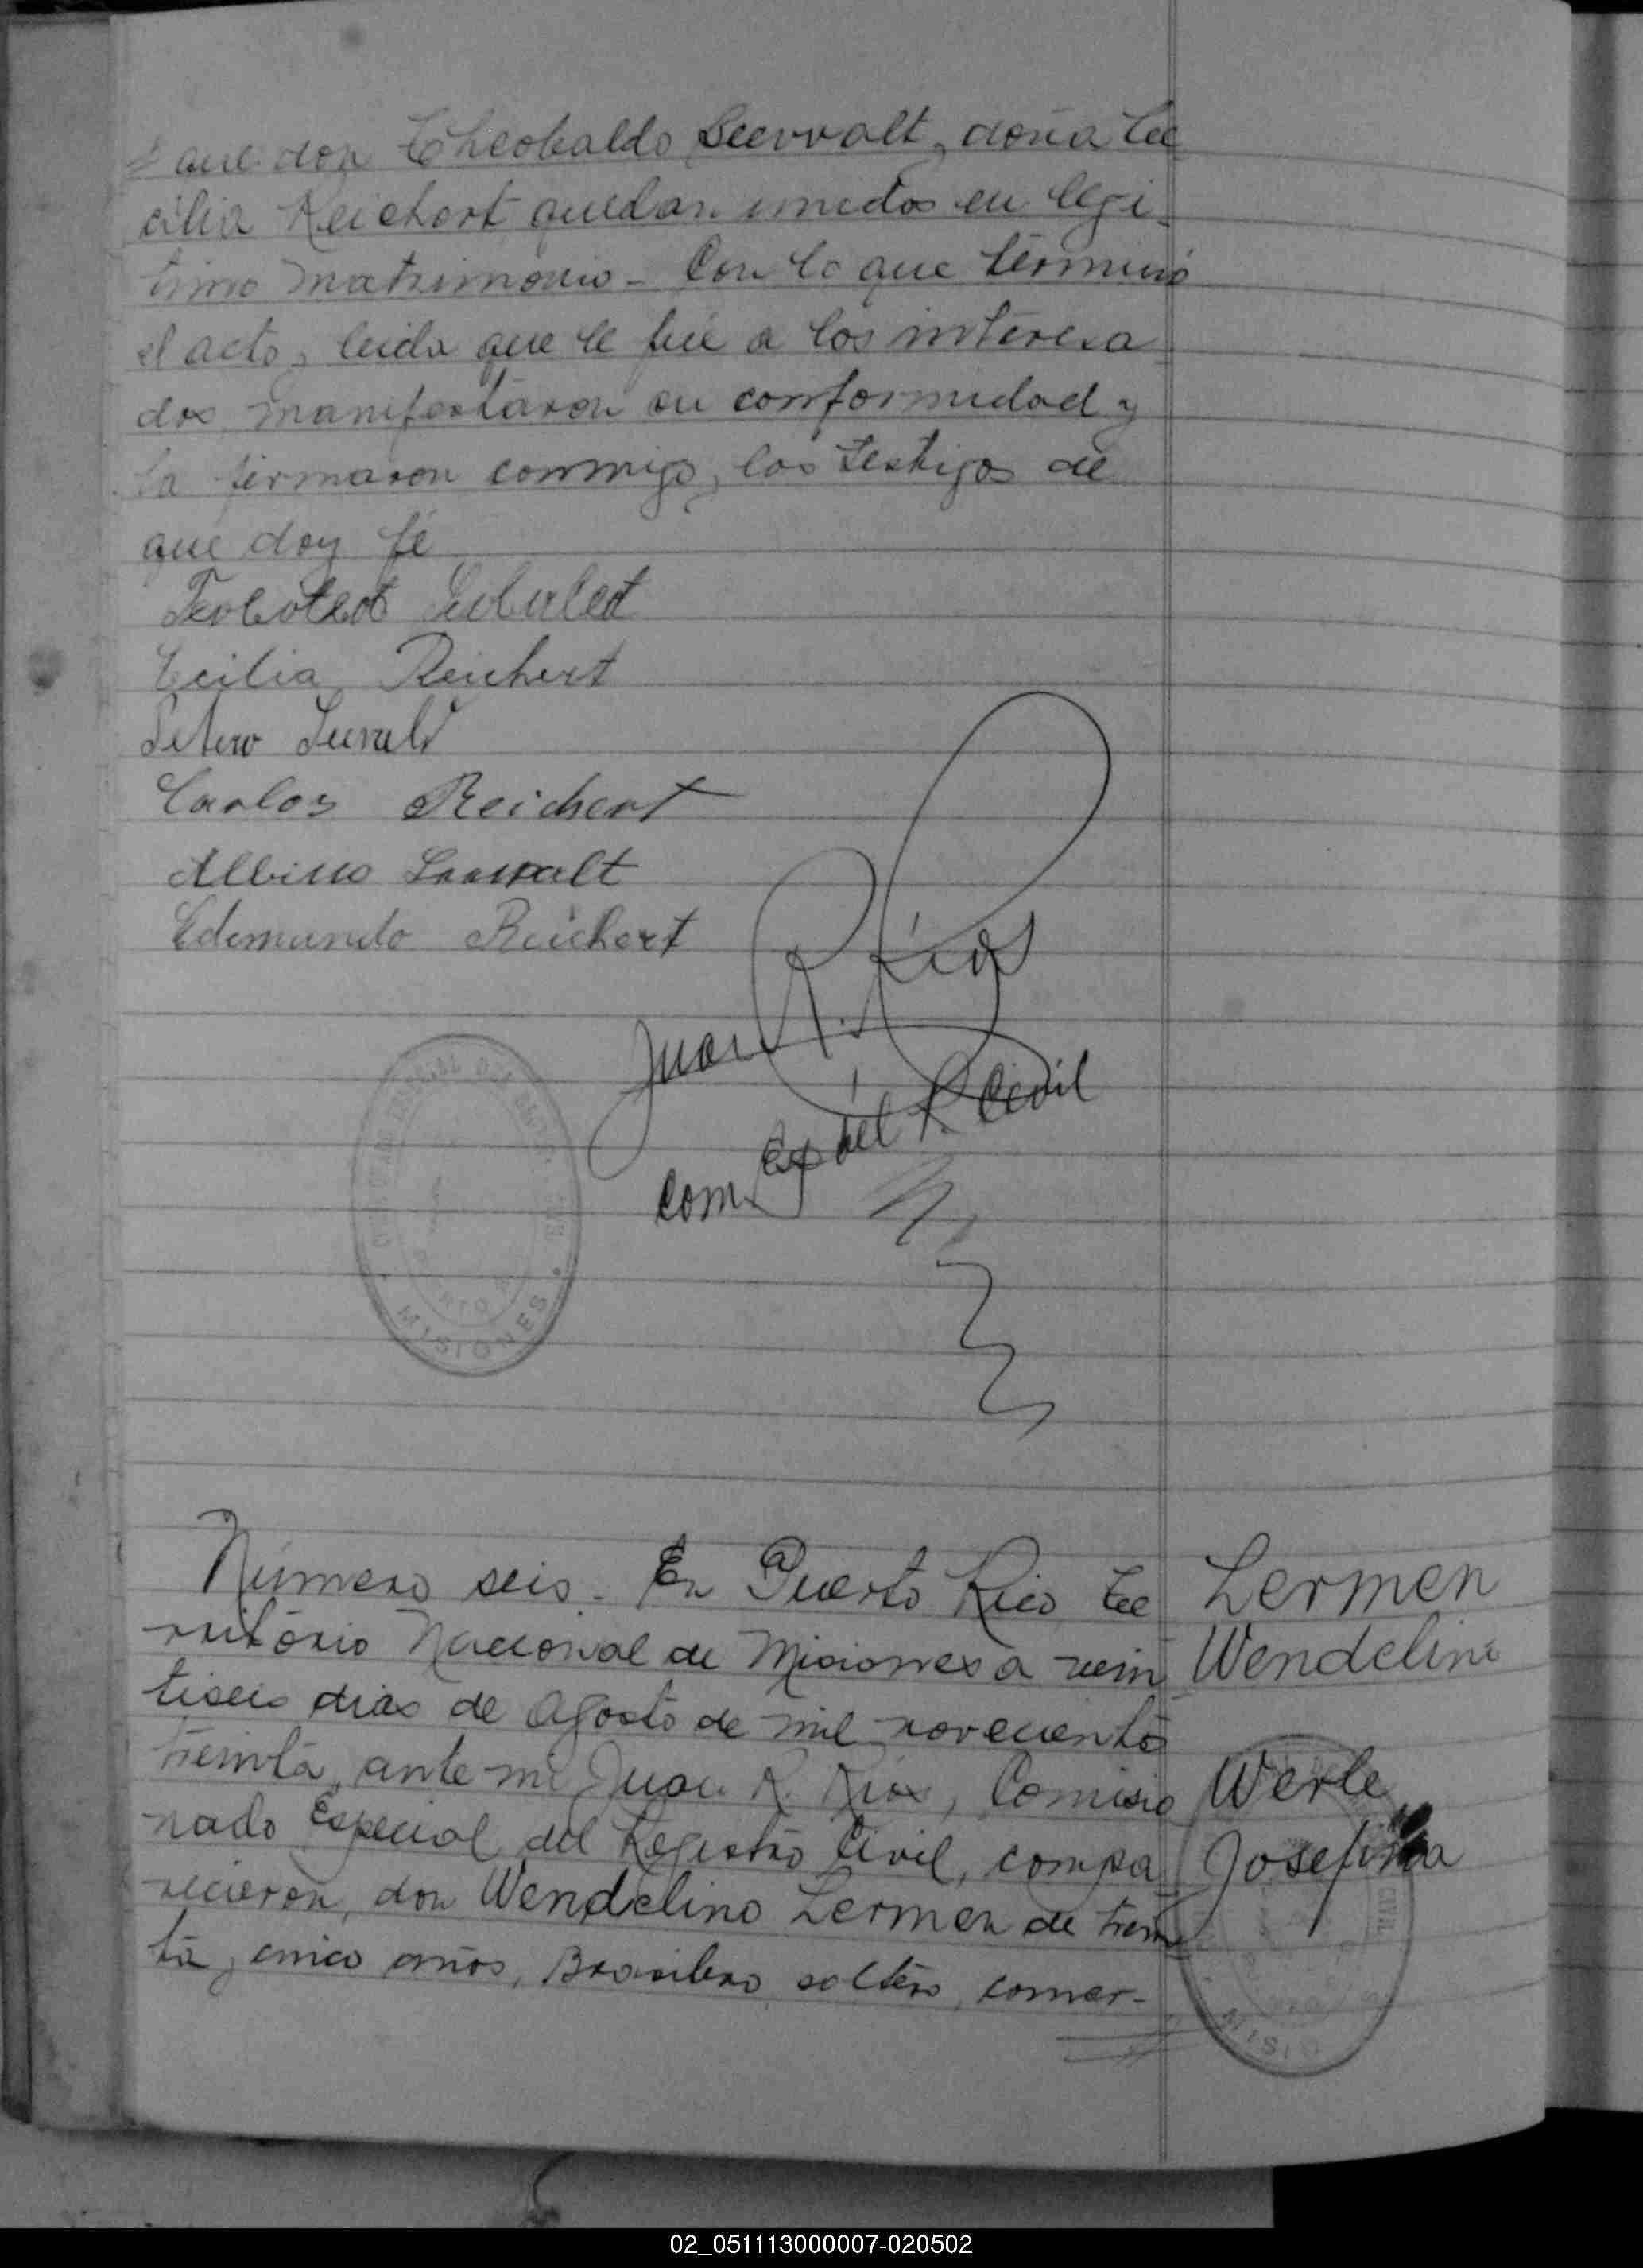 que don Theobaldo Seewalt, doña Ce
cilia Reichert quedan unidos en legi-
timo matrimonio - Con lo que terminó
el acto, leida que le fué a los interesa
dos manifestaron su conformidad y
la firmaron conmigo, los testigos de
que doy fé
Cecilia Reichert
Carlos Reichert
Albino
Edemundo Reichert
Juan R. Ríos
Com. Esp del R. Civil
MISIONES
Número seis. En Puerto Rico Te
rritório Nacional de Misiones a vein
tiseis dias de Agosto de mil novecientos
treinta, ante mi Juan R. Ríos, Comisio
nado Especial del Registro Civil, compa
recieron, don Wendelino Lermen de trein
ta y cinco años, Brasilero, soltero, comer-
Lermen
Wendelino
Werle
Josefina
CIVIL
02_051113000007-020502